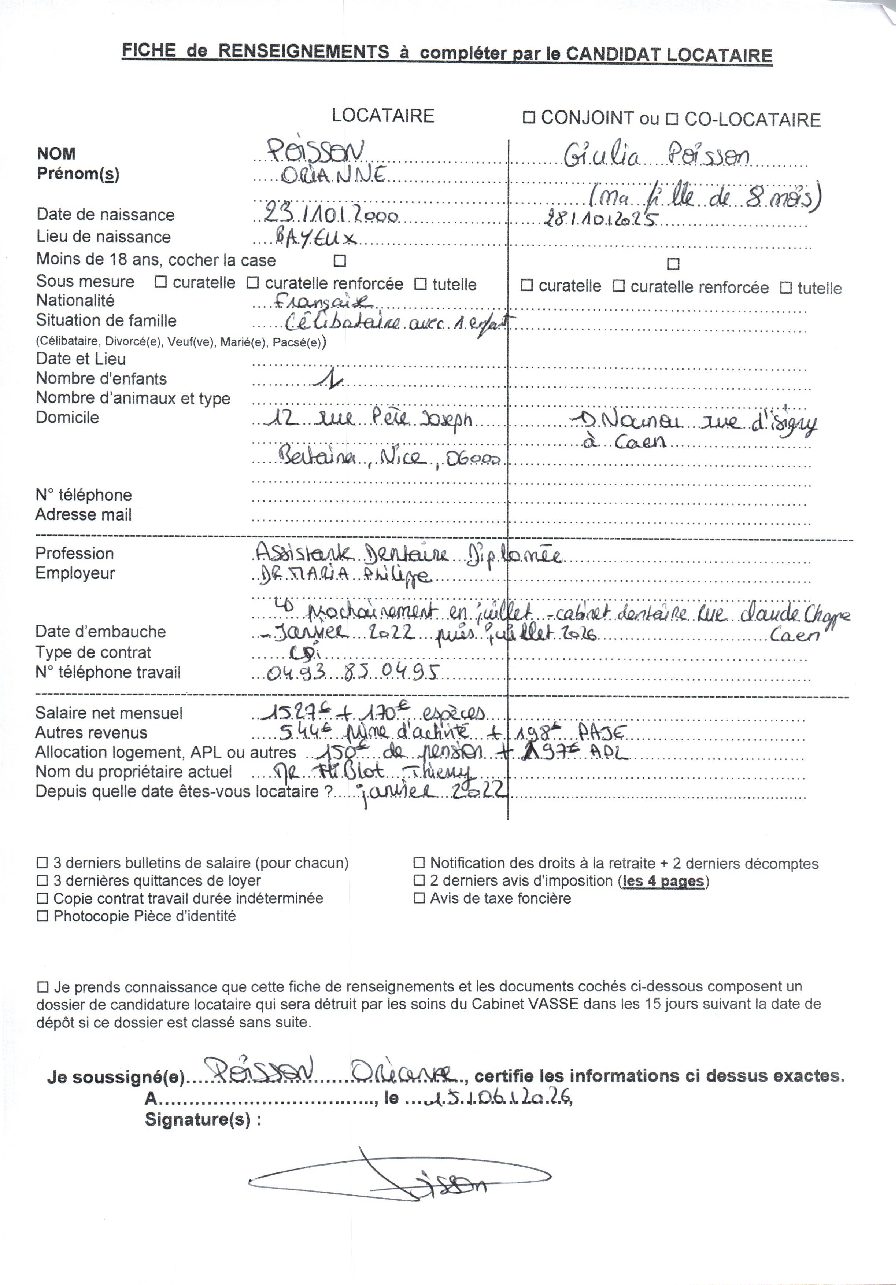 FICHE de RENSEIGNEMENTS à compléter par le CANDIDAT LOCATAIRE
LOCATAIRE ☐ CONJOINT ou ☐ CO-LOCATAIRE
NOM POISSON Giulia Poisson
Prénom(s) ORIANNE
(ma fille de 8 mois)
Date de naissance 23/10/2000 28/10/2025
Lieu de naissance BAYEUX
Moins de 18 ans, cocher la case ☐ ☐
Sous mesure ☐ curatelle ☐ curatelle renforcée ☐ tutelle ☐ curatelle ☐ curatelle renforcée ☐ tutelle
Nationalité Française
Situation de famille Célibataire avec 1 enfant
(Célibataire, Divorcé(e), Veuf(ve), Marié(e), Pacsé(e))
Date et Lieu
Nombre d'enfants 1
Nombre d'animaux et type
Domicile 12 rue Père Joseph rue d'isigny
à Caen
Nice, 06000
N° téléphone
Adresse mail
Profession Assistante Dentaire Diplomée
Employeur DR MARIA Philippe
↳ prochainement en juillet - cabinet dentaire Rue claude Chappe
Caen
Date d'embauche - Janvier 2022 puis juillet 2026
Type de contrat CDi
N° téléphone travail 04.93.85.04.95
Salaire net mensuel 1527€ + 170€ espèces
Autres revenus 544€ prime d'activité + 198€ PAJE
Allocation logement, APL ou autres 150€ de pension + 197€ APL
Nom du propriétaire actuel Mr Blot Thierry
Depuis quelle date êtes-vous locataire ? janvier 2022
☐ 3 derniers bulletins de salaire (pour chacun) ☐ Notification des droits à la retraite + 2 derniers décomptes
☐ 3 dernières quittances de loyer ☐ 2 derniers avis d'imposition (les 4 pages)
☐ Copie contrat travail durée indéterminée ☐ Avis de taxe foncière
☐ Photocopie Pièce d'identité
☐ Je prends connaissance que cette fiche de renseignements et les documents cochés ci-dessous composent un
dossier de candidature locataire qui sera détruit par les soins du Cabinet VASSE dans les 15 jours suivant la date de
dépôt si ce dossier est classé sans suite.
Je soussigné(e) POISSON Orianne, certifie les informations ci dessus exactes.
A............................, le 15/06/2026
Signature(s) :
Poisson